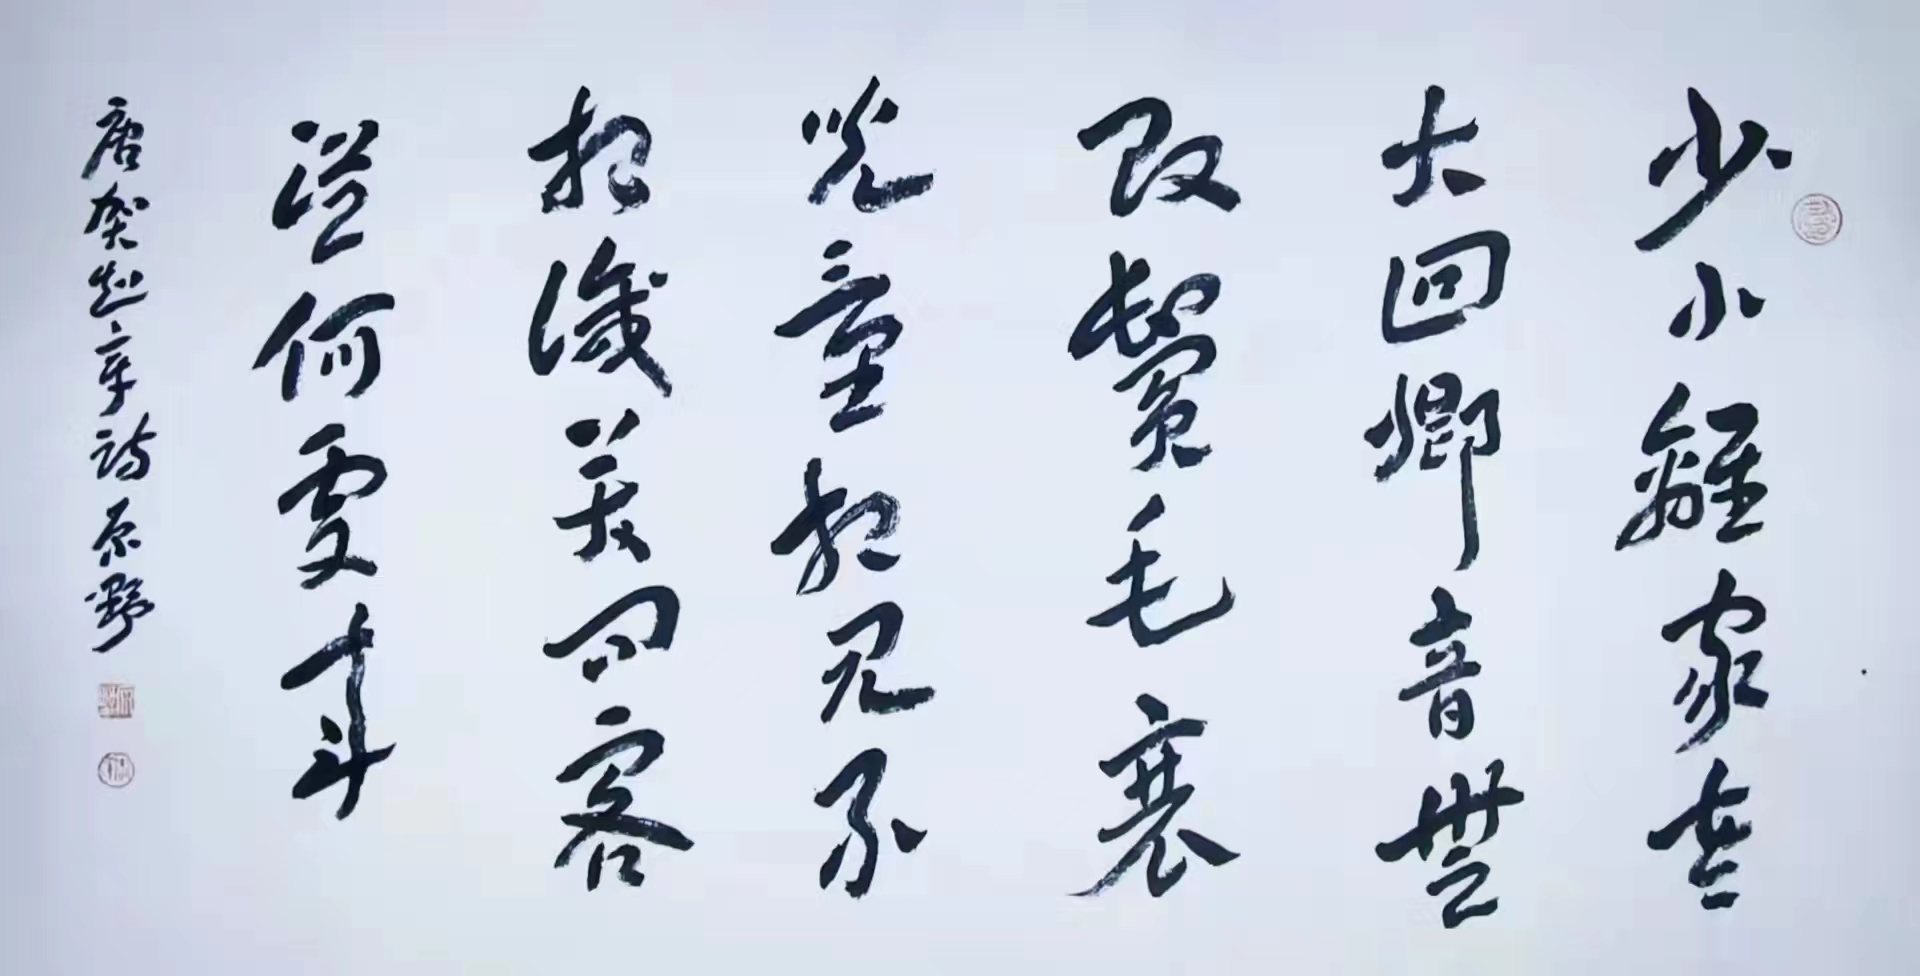 少小離家老
大回鄉音無
改鬢毛衰
兒童相見不
相識笑問客
從何處來
唐賀知章詩 原野